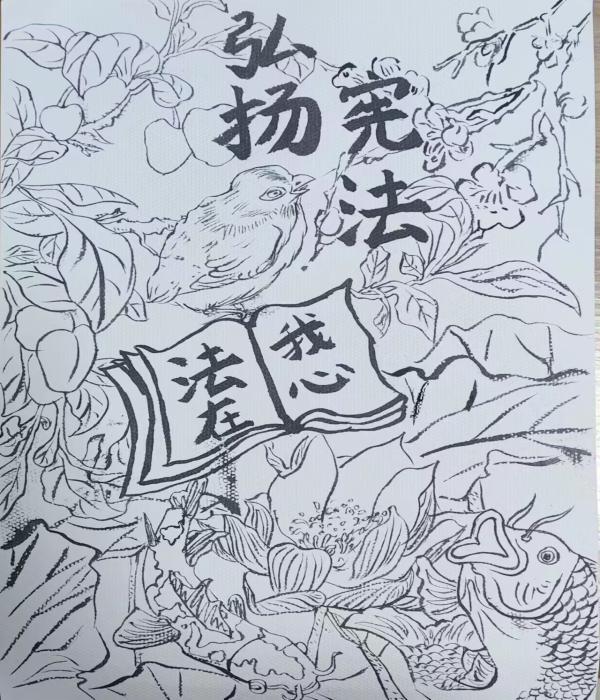 弘扬
宪法
法在
我心